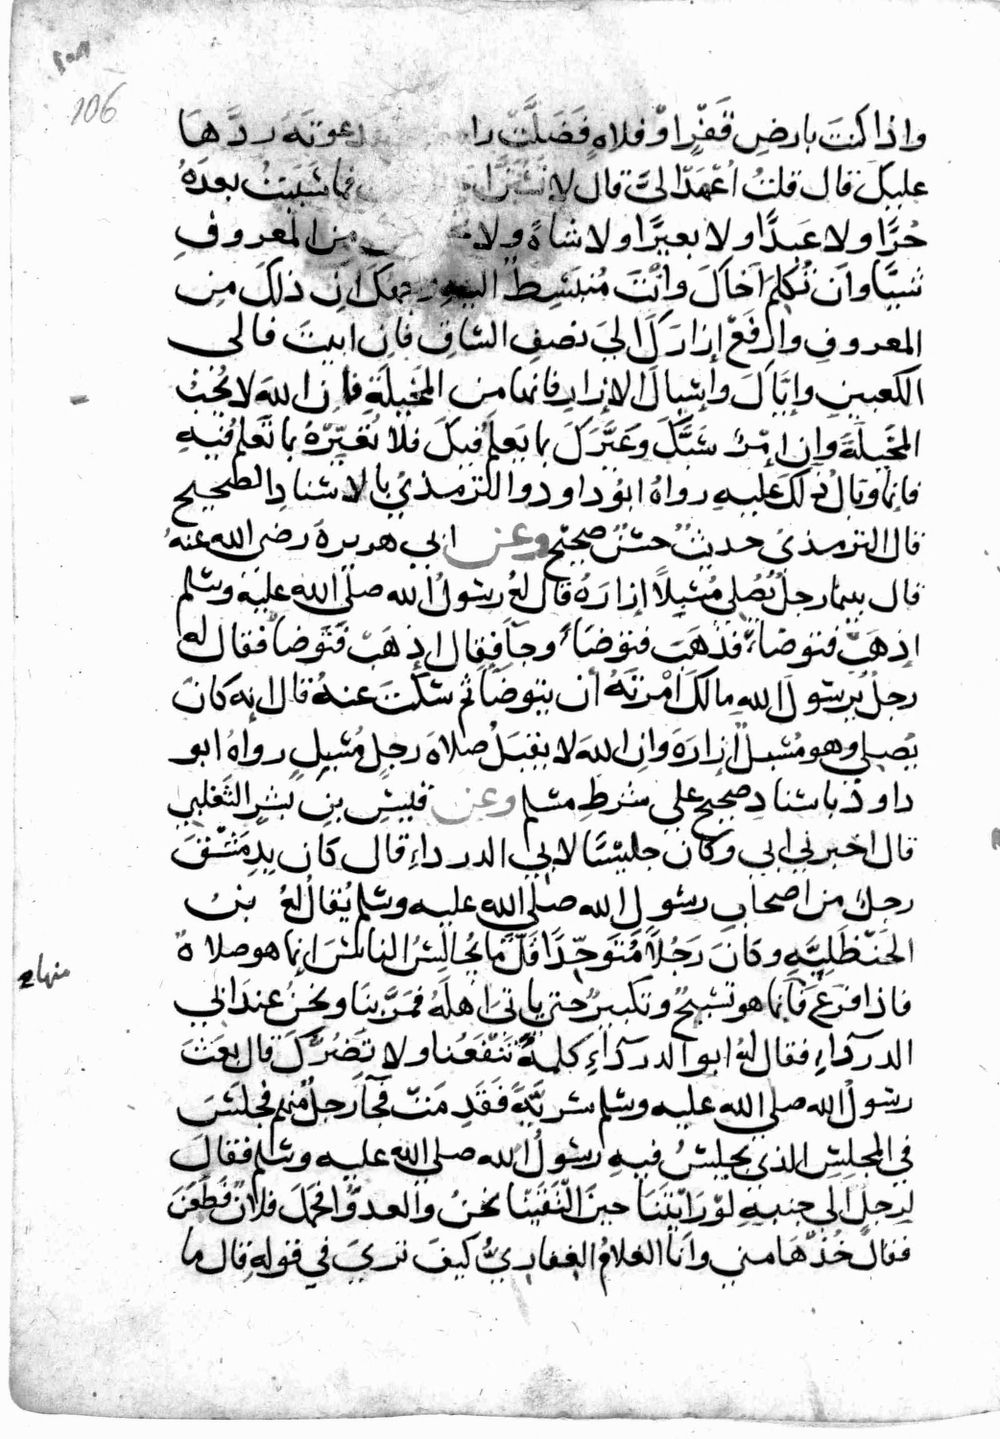 106
واذا كنتَ بارضِ قَفْرٍاوْ فلاهٍ فَضَلَّتْ را دعوتَهُ ردَّها
عليكَ قال قلتُ اعْهَدْ اليَّ قال لا تَسُبَّنَّ ا فما سَبَبْتُ بعدَهُ
حُرًّا ولا عَبدًا ولا بعيرًا ولا شاةً ولا من المعروفِ
شيًا وان تُكلِمَ اخاكَ وانْتَ مُنبَسِطٌ اليهِ وجهكَ ان ذلكَ من
المعروفِ وارفَعْ إزارَكَ الي نصفِ الساقِ فان ابيتَ فالي
الكعبينِ وإيَّاكَ واسْبالَ الازارِ فانها من المَخِيلةِ فان اللهَ لا يُحبُ
المَخِيلَةَ وان امْرُؤٌ شَتَمَكَ وعَيَّرَكَ بما يَعلم فيكَ فلا تُعَيِّرْهُ بما تَعْلَمُ فيهِ
فانما وبالُ ذلكَ عليهِ رواهُ ابو داود والترمذي بالاسنادِ الصحيحِ
قال الترمذي حديثٌ حسنٌ صحيحٌ وعن ابي هريرةَ رضي الله عنهُ
قال بينما رجلٌ يُصلي مُسْبِلاً إزارَهُ قال لهُ رسولُ الله صلى الله عليه وسلم
إذهَبْ فتوضا فذهَبَ فتوضأ وجا فقال إذهَبْ فتوضا فقال له
رجلٌ يرسولَ اللهِ مالكَ امرْتَهُ أن يتوضا ثم سكتَ عنهُ قال إنه كان
يُصلي وهو مُسْبلٌ إزارَهَ وان اللهَ لا يقبَلُ صلاةَ رجلٍ مُسْبلٍ رواهُ ابو
داود باسنادٍ صحيحٍ علي شرطِ مسلم وعن قيسِ بنِ بشرٍ التَّغلبي
قال اخبرني ابي وكان جليسًا لابي الدرداءِ قال كان بِدِمَشْقَ
رجلٌ من اصحابِ رسولِ الله صلي الله عليه وسلم يُقالُ لهُ بنُ
الحَنْظَلِيَّهِ وكانَ رَجُلاً مُتَوحِّدًا قَلَّ ما يُجالِسُ الناسَ انما هو صلاةٌ
فاذا فرغَ فانما هو تسْبيحٌ وتكبيرٌ حتي ياتيَ اهلَهُ فمَرَّ بنا ونحنُ عندَ ابي
الدرداءِ فقال لهُ ابو الدرداءِ كلمةً تَنْفَعُنا ولا تَضُرُّكَ قال بعَثَ
رسولُ الله صلي الله عليه وسلم سَريَّةً فَقَدِمَتْ فجآَ رجلٌ منهم فجلَسَ
في المجلسِ الذي يجلِسُ فيهِ رسولُ الله صلي الله عليه وسلم فقالَ
لرجلٍ الي جنبهِ لوْ رَايْتَنا حينَ الْتَقَيْنا نحنُ والعدوُّ فحملَ فلانٌ فَطَعَنَ
فقال خُذْها مني وأنا الغلامُ الغفاريُّ كيفَ تريَ في قولهِ قال ما